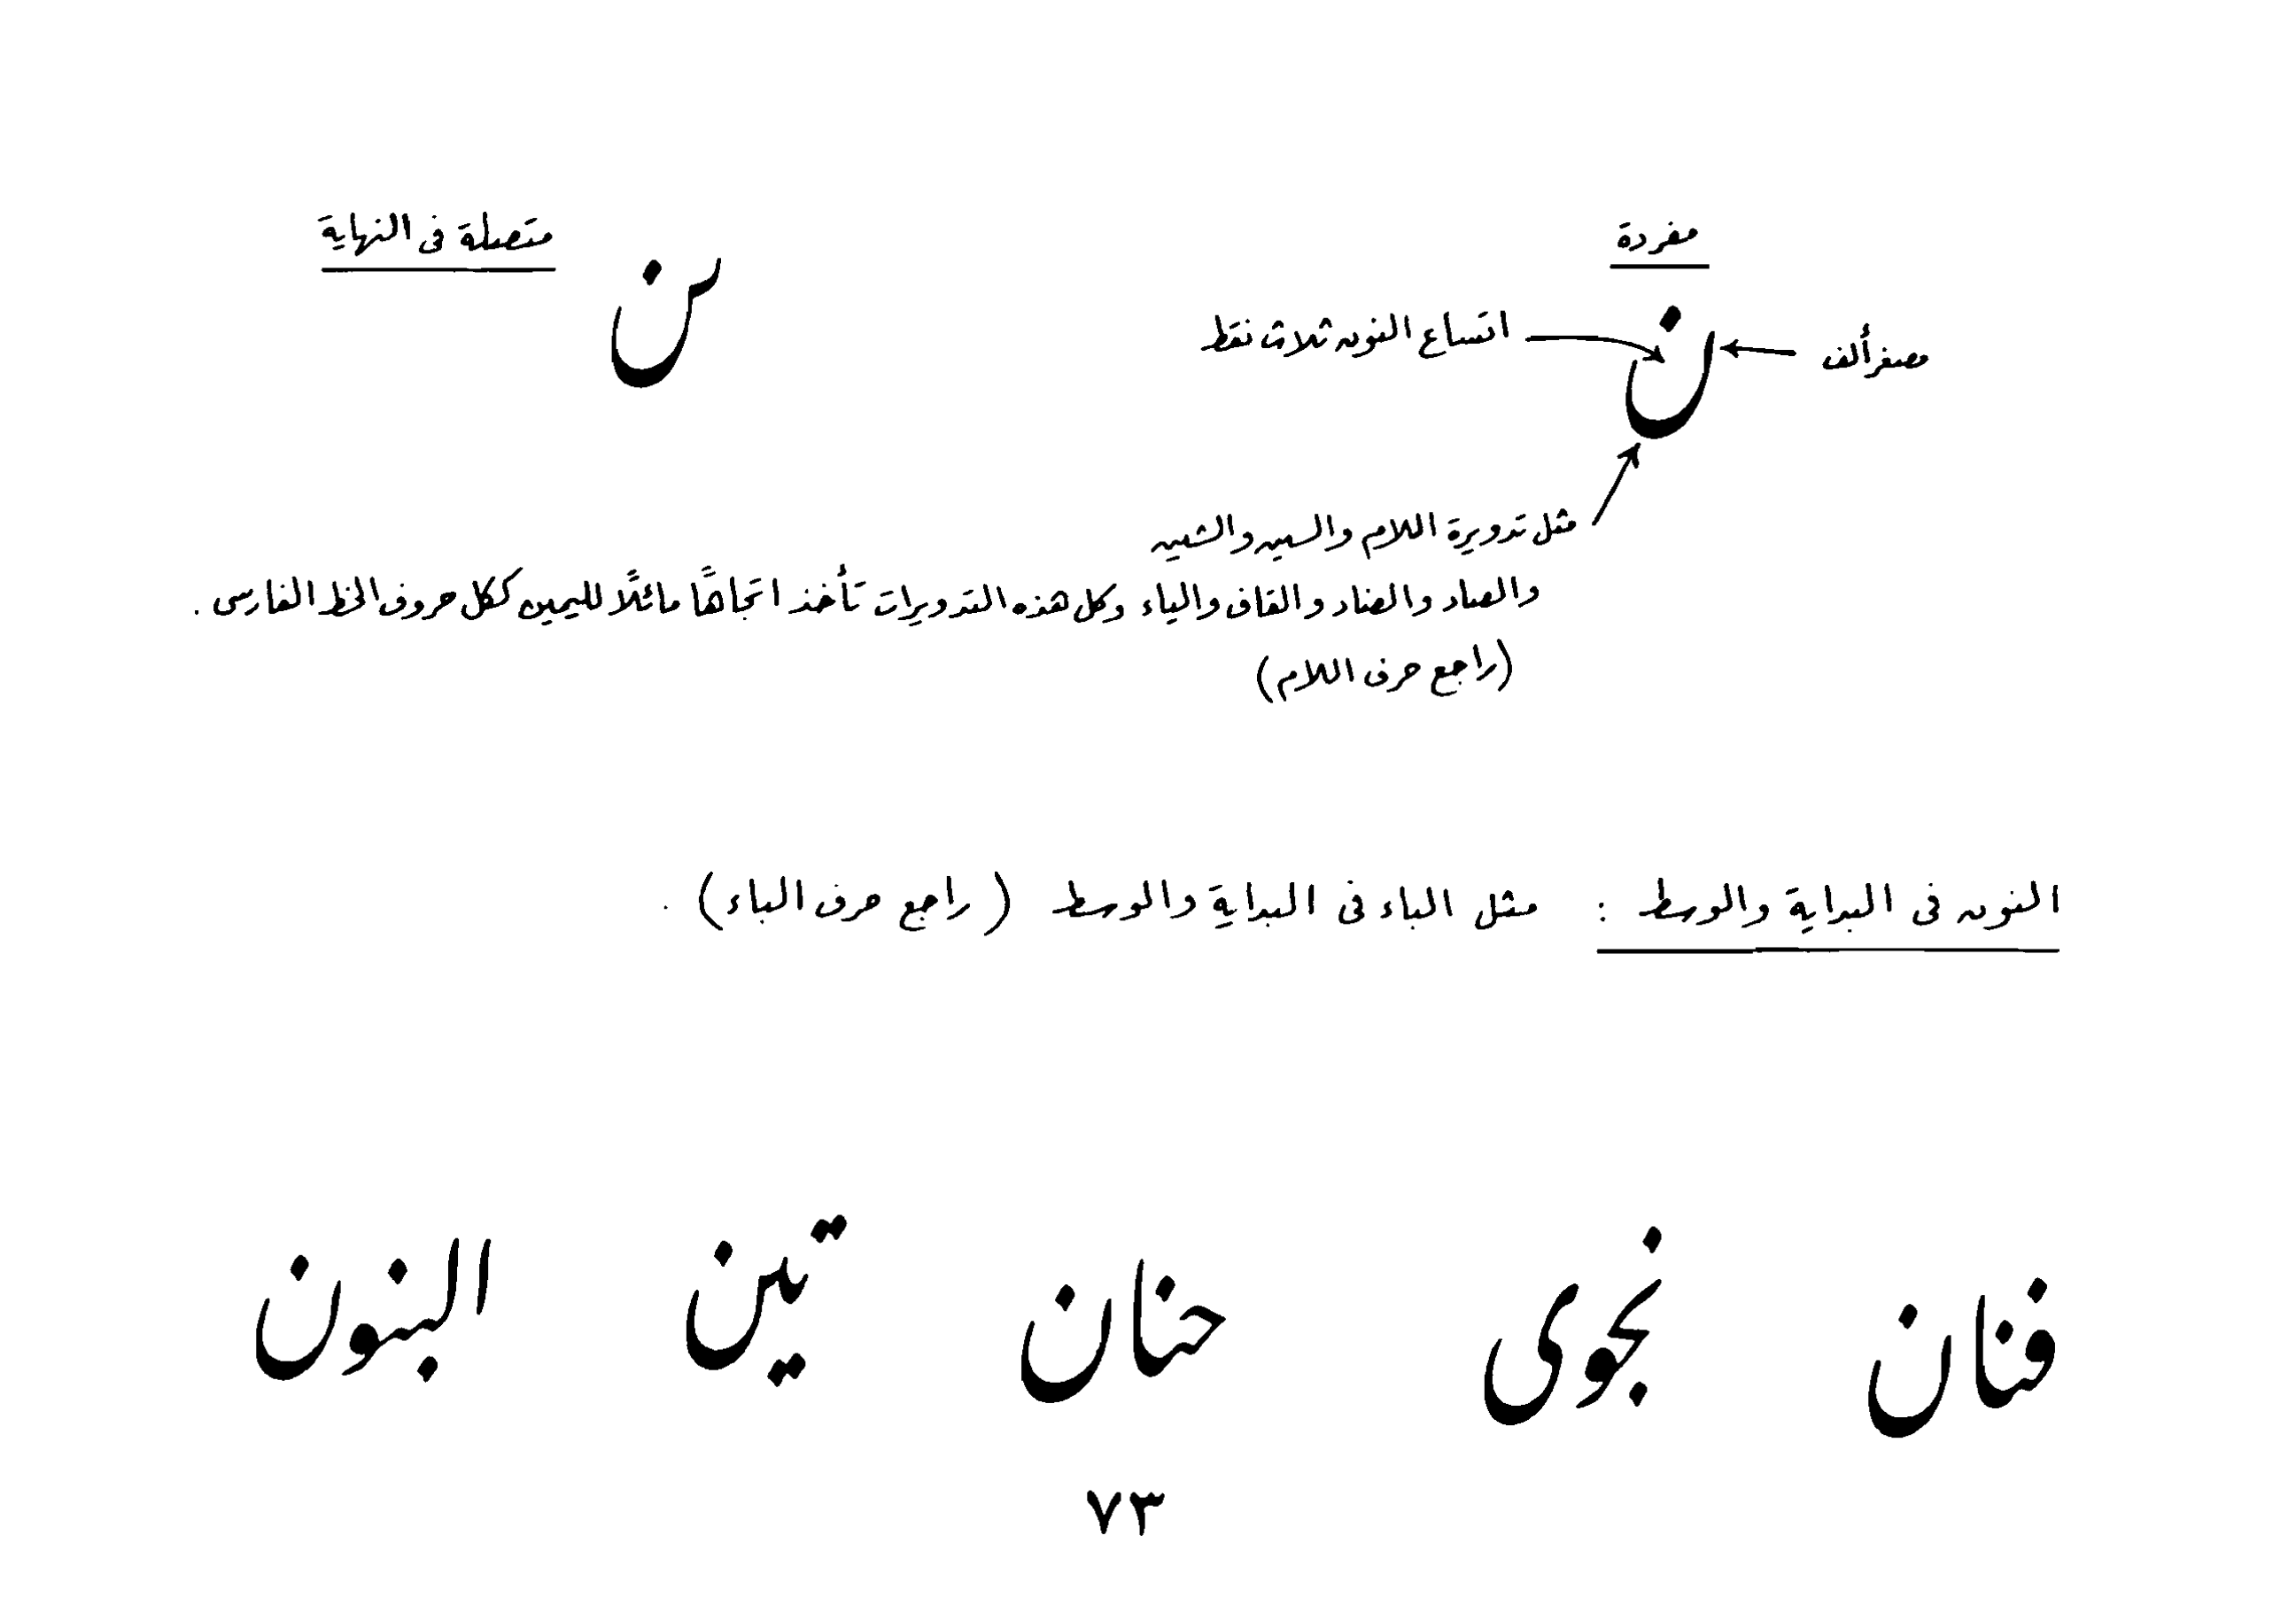 مفردة
متصلة فى النهاية
ن
ن
مصغر ألف
اتساع النون ثلاث نقط
مثل تدويرة اللام والسين والشين
والصاد والضاد والقاف والياء وكل هذه التدويرات تأخذ اتجاهًا مائلًا لليمين ككل حروف الخط الفارسى .
(راجع حرف اللام)
النون فى البداية والوسط : مثل الباء فى البداية والوسط (راجع حرف الباء) .
فنان نجوى حنان تين البنون
٧٣